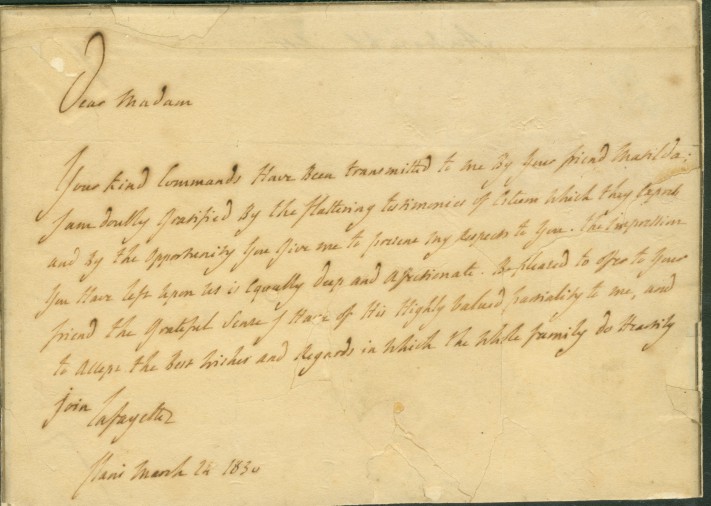 Dear Madam
Your kind Commands Have Been transmitted to me By Your friend Matilda;
I am doubly Gratified By the flattering testimonies of Esteem Which they Express
and By the Opportunity You Give me to present my Respects to You. The Impression
You Have left upon Us is Equally deep and affectionate. Be pleased to offer to Your
friend the Grateful Sense I Have of His Highly Valued partiality to me, and
to Accept the Best Wishes and Regards in Which the Whole family do Heartily
join Lafayette
Paris March 1830